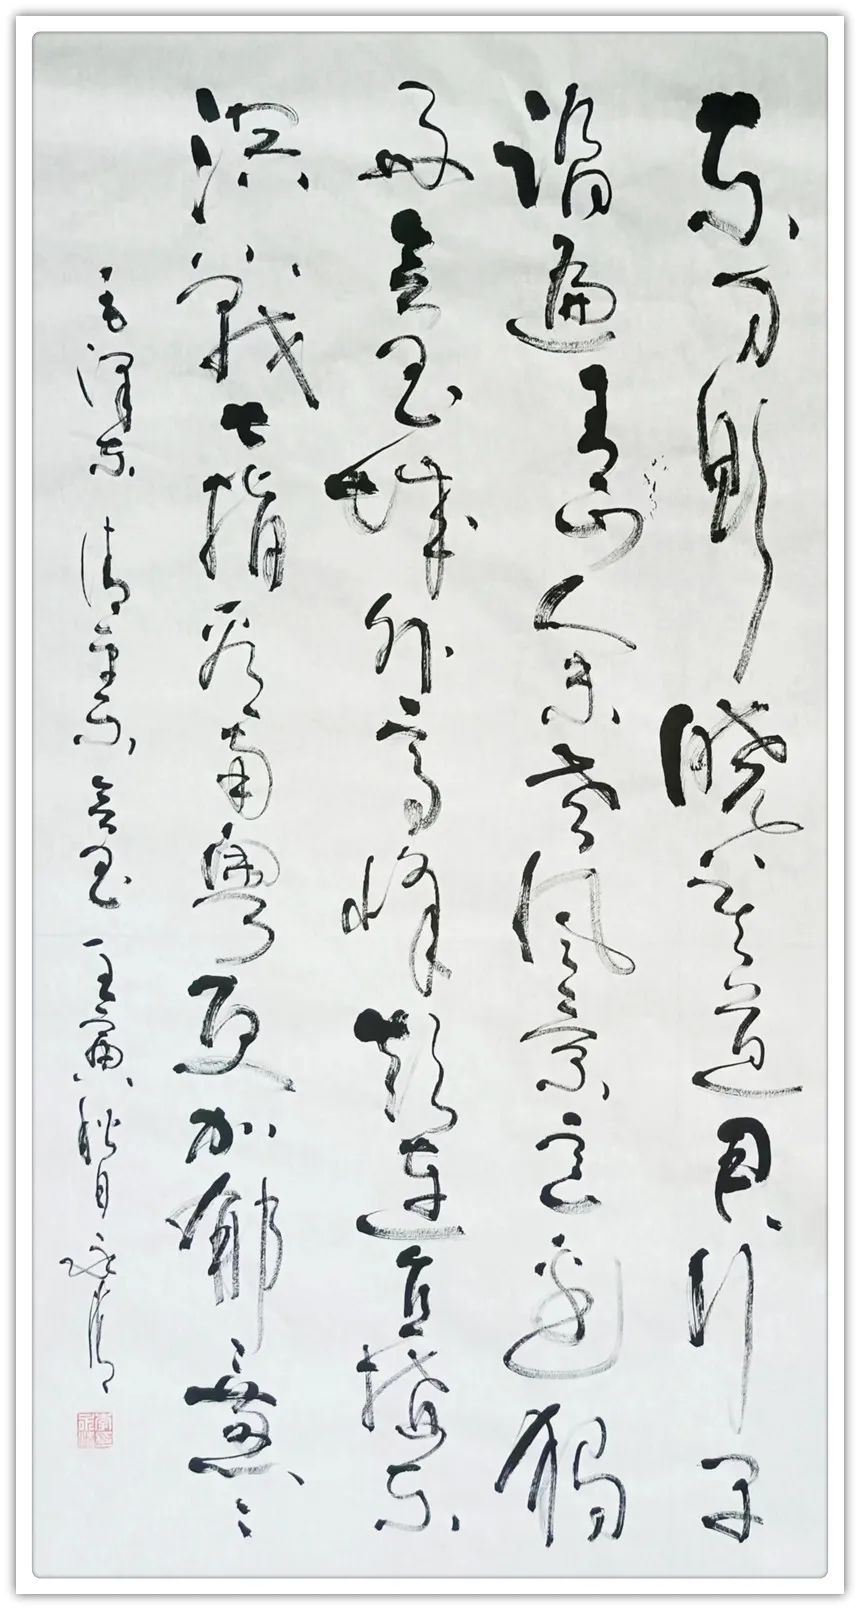 东方欲曉莫道君行早
踏遍青山人未老风景这边獨
好会昌城外高峰颠连直接东
溟戰士指看南粤更加郁〻葱〻
毛泽东 清平乐 会昌 壬寅秋月